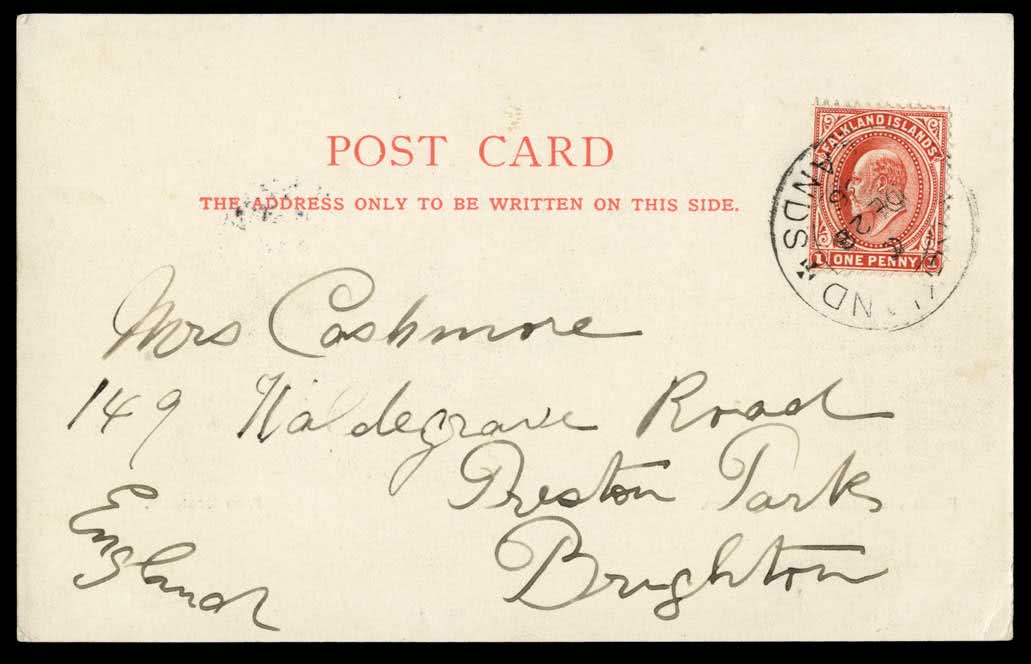 POST CARD
THE ADDRESS ONLY TO BE WRITTEN ON THIS SIDE.
FALKLAND ISLANDS
1 ONE PENNY 1
FALKLAND ISLANDS
DE 28
Mrs Cashmore
149 Waldegrave Road
Preston Park
Brighton
England